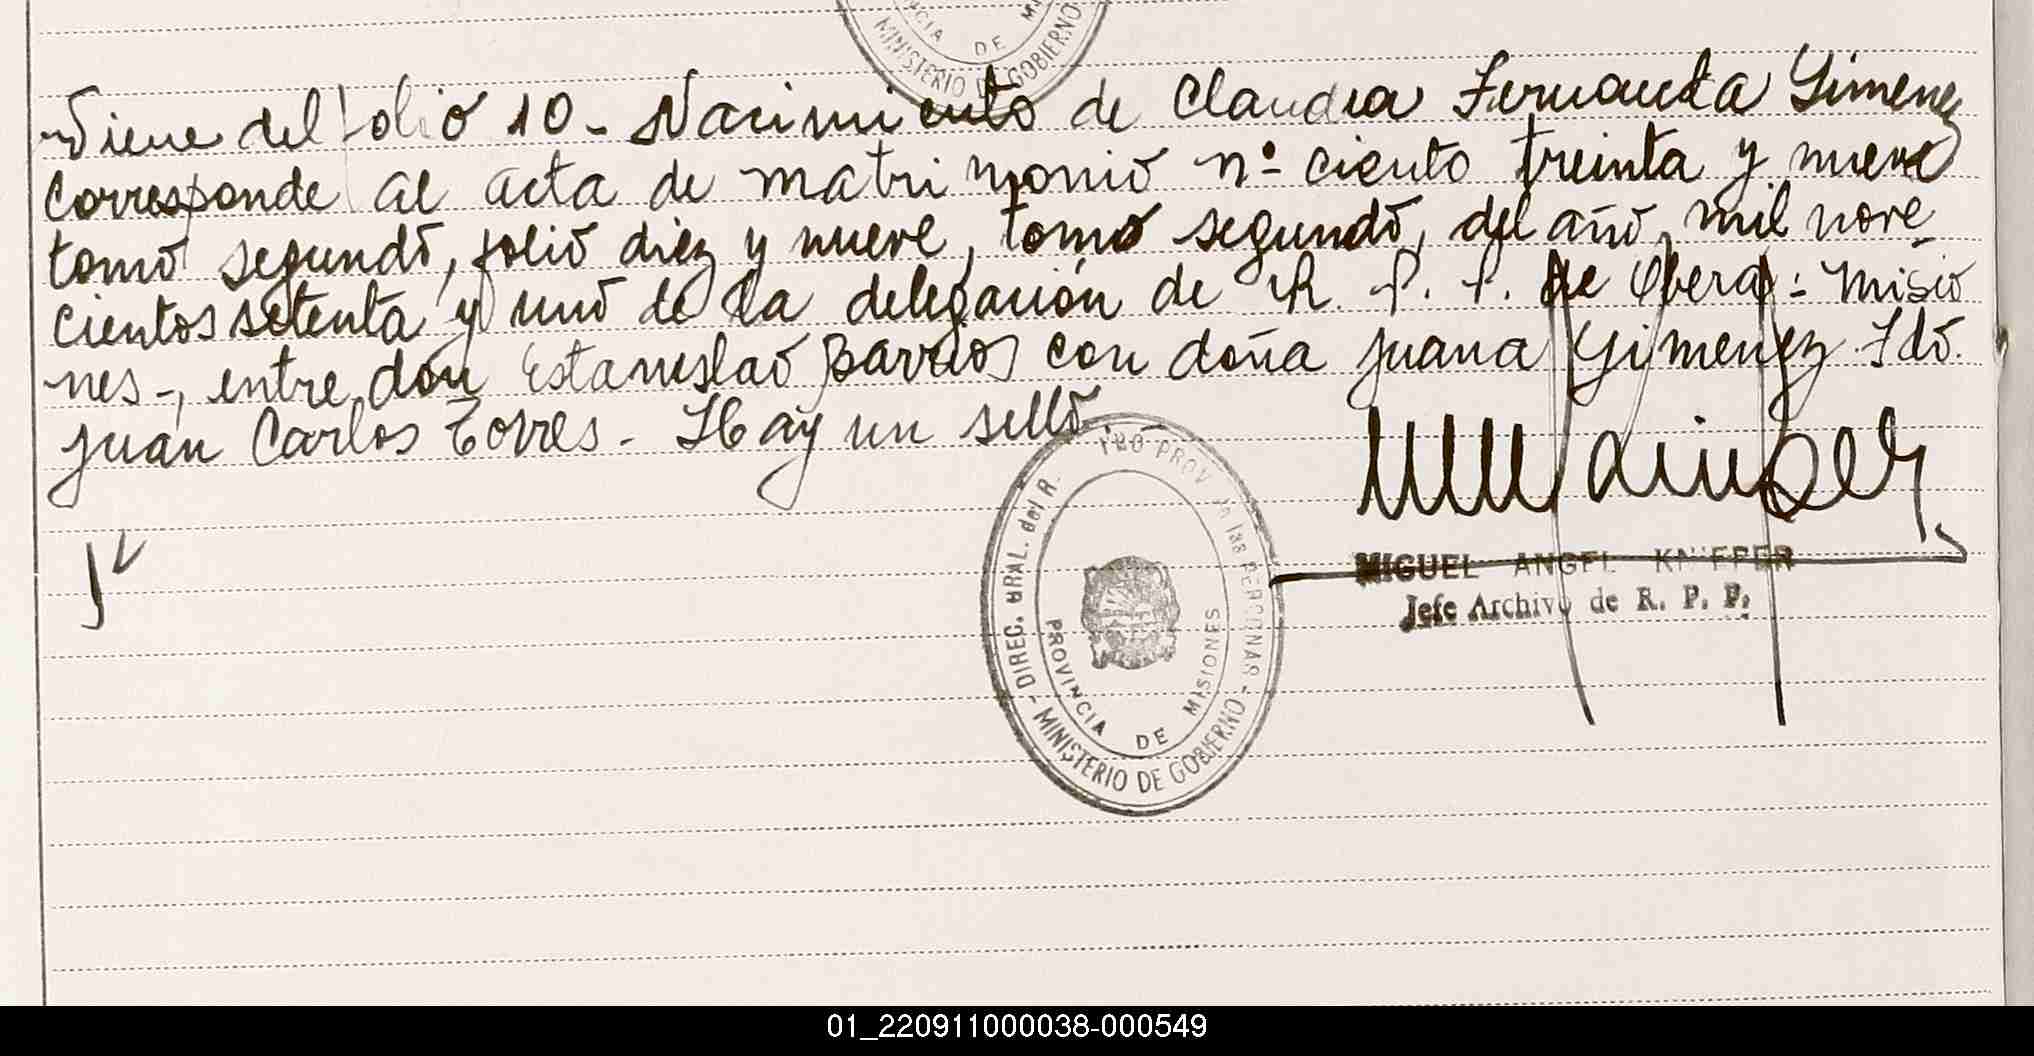 CIA DE MI
MINISTERIO DE GOBIERNO
Viene del folio 10 - Nacimiento de Claudia Fernanda Gimenez
corresponde al acta de matrimonio nº ciento treinta y nueve
tomo segundo, folio diez y nueve, tomo segundo, del año, mil nove_
cientos setenta y uno de la delegación de R. P. P. de Obera - Misio
nes -, entre don Estanislao Barrios con doña Juana Gimenez. Fdo.
Juan Carlos Torres - Hay un sello.
DIREC. GRAL. del R. PROV de las PERSONAS - MINISTERIO DE GOBIERNO -
PROVINCIA DE MISIONES
MIGUEL ANGEL KNIEPER
Jefe Archivo de R. P. P.
01_220911000038-000549